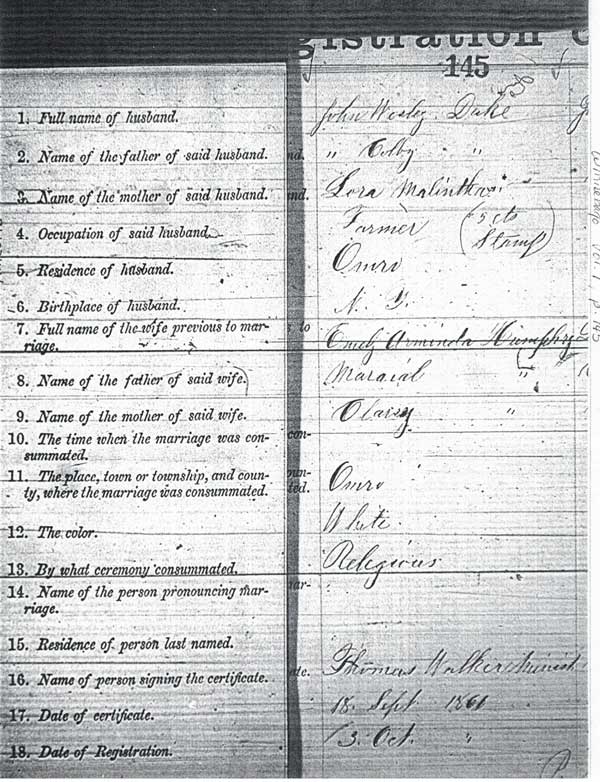 gistration
145
1. Full name of husband. John Wesley Dake
2. Name of the father of said husband. " Colby "
3. Name of the mother of said husband. Lora Malintha
4. Occupation of said husband. Farmer (5 cts
Stamp)
5. Residence of husband. Omro
6. Birthplace of husband. N. Y.
7. Full name of the wife previous to mar-
riage. Emely Arminda Humphry
8. Name of the father of said wife. "
9. Name of the mother of said wife. "
10. The time when the marriage was con-
summated.
11. The place, town or township, and coun-
ty, where the marriage was consummated. Omro
12. The color. White
13. By what ceremony consummated. Religious
14. Name of the person pronouncing mar-
riage.
15. Residence of person last named.
16. Name of person signing the certificate. Thomas Walker Minist
17. Date of certificate. 18. Sept
18. Date of Registration. 3. Oct. "
Winnebago Vol 1, p. 145